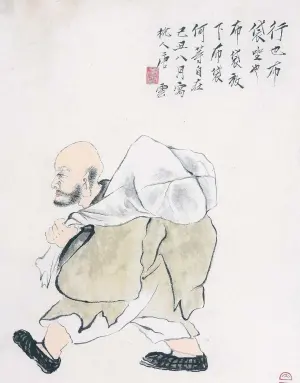 行也布
袋坐也
布袋放
下布袋
何等自在
己丑八月寫
桃人唐雲